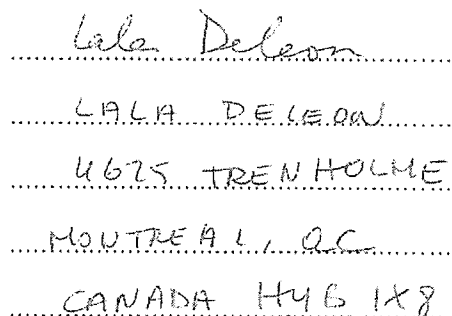 Lala Deleon
LALA DELEON
4625 TRENHOLME
MONTREAL, QC
CANADA H4B 1X8